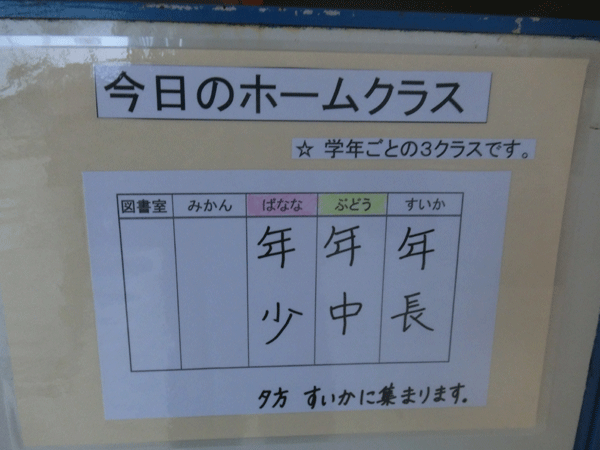 今日のホームクラス
☆ 学年ごとの3クラスです。
図書室 みかん ばなな ぶどう すいか
年少 年中 年長
夕方 すいかに集まります。